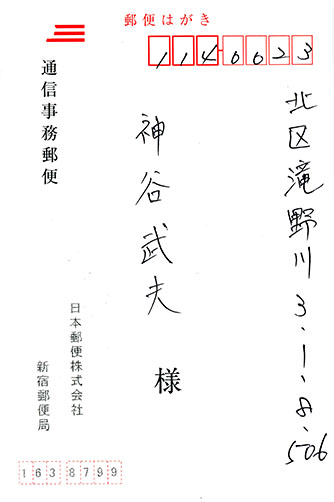 郵便はがき
114-0023
北区滝野川3-1-8-506
神谷武夫
様
通信事務郵便
日本郵便株式会社
新宿郵便局
1638799